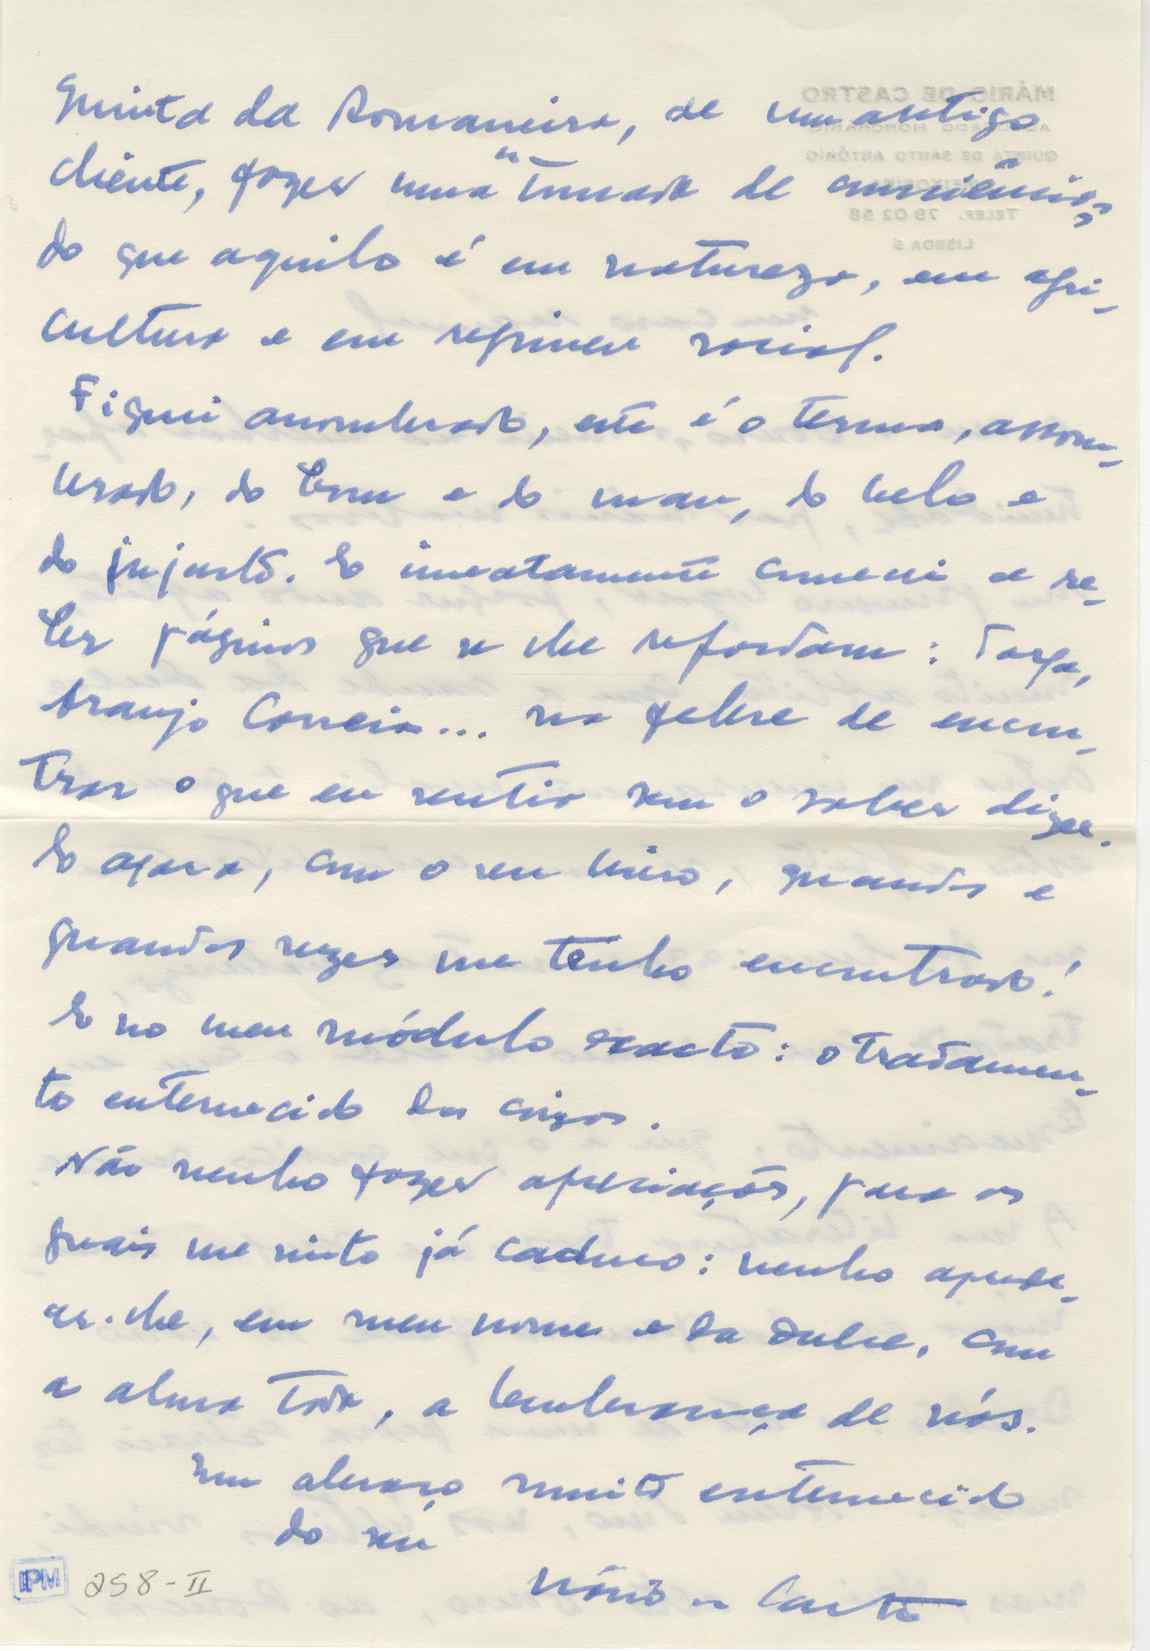 Quinta da Romaneira, de um antigo
cliente, fazer uma "tomada de consciência"
do que aquilo é em natureza, em agri-
cultura e em regimen social.
Fiquei assombrado, este é o termo, assom-
brado, do bom e do mau, do belo e
do injusto. E imediatamente comecei a re-
ler páginas que se lhe reportam: Torga,
Araujo Correia... na febre de encon-
trar o que eu sentia sem o saber dizer.
E agora, com o seu livro, quandos e
quandas vezes me tenho encontrado!
E no meu módulo exacto: o tratamen-
to enternecido das coisas.
Não venho fazer apreciações, para as
quais me sinto já caduco: venho agrade-
cer-lhe, em meu nome e da Dulce, com
a alma toda, a lembrança de nós.
Um abraço muito enternecido
do seu
Mário de Castro
IPM 258-II
MÁRIO DE CASTRO
ADVOGADO HONORÁRIO
QUINTA DE SANTO ANTÓNIO
TELEF. 79 02 58
LISBOA 5